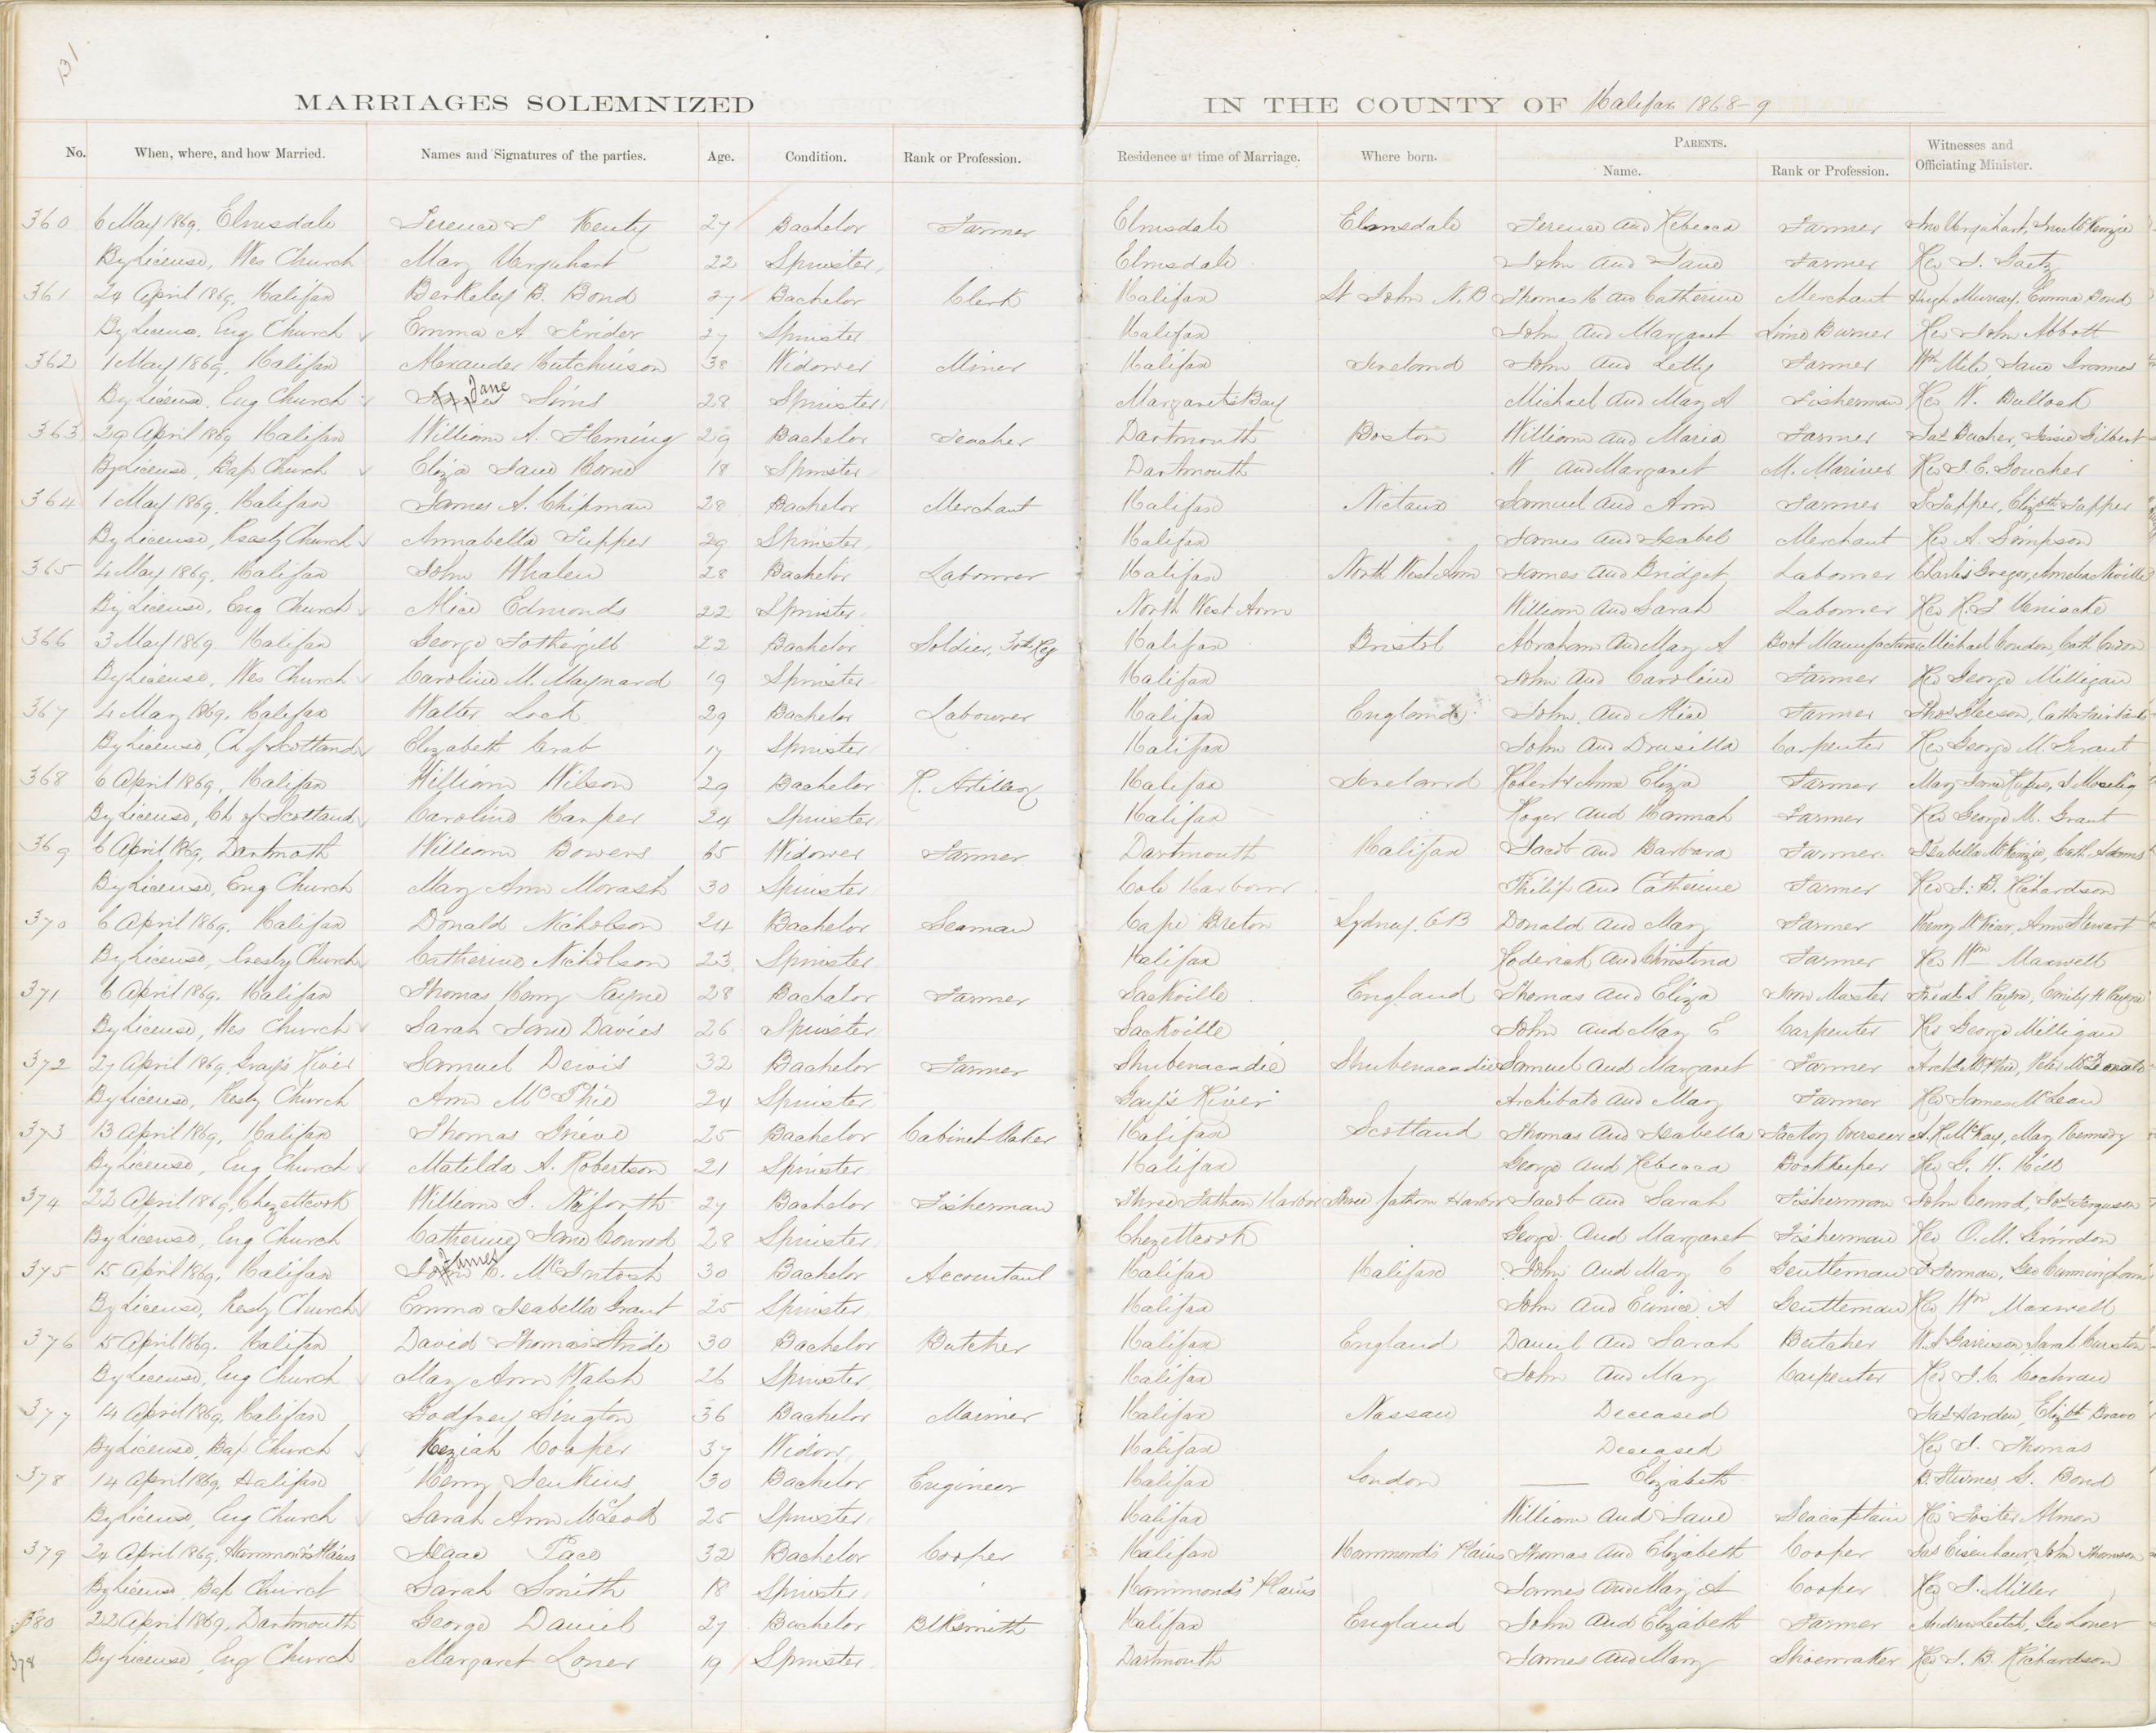 131
MARRIAGES SOLEMNIZED IN THE COUNTY OF Halifax 1868-9
No. When, where, and how Married. Names and Signatures of the parties. Age. Condition. Rank or Profession. Residence at time of Marriage. Where born. PARENTS. Name. Rank or Profession. Witnesses and Officiating Minister.
360 6 May 1869. Elmsdale Terence T Henty 27 Bachelor Farmer Elmsdale Elmsdale Terence and Rebecca Farmer Jno Urquhart, Jno McKenzie
By License, Wes Church Mary Urquhart 22 Spinster Elmsdale John and Jane Farmer Rev J. Gaetz
361 24 April 1869. Halifax Berkeley B. Bond 27 Bachelor Clerk Halifax St John N.B Thomas H and Catherine Merchant Hugh Murray, Emma Bond
By License. Eng Church Emma A Trider 27 Spinster Halifax John and Margaret Lime Burner Rev John Abbott
362 1 May 1869. Halifax Alexander Hutchinson 38 Widower Miner Halifax Ireland John and Letty Farmer Wm Jane
By License. Eng Church Jane Sims 28 Spinster Margaret's Bay Michael and Mary A Fisherman Rev W. Bullock
363 29 April 1869 Halifax William A. Fleming 29 Bachelor Teacher Dartmouth Boston William and Maria Farmer Jas Bucher, Jessie Gilbert
By License, Bap Church Eliza Jane Horne 18 Spinster Dartmouth W and Margaret M. Mariner Rev J. E. Goucher
364 1 May 1869. Halifax James A. Chipman 28 Bachelor Merchant Halifax Nictaux Samuel and Ann Farmer S Tupper, Elizbth Tupper
By License, Presby Church Annabella Tupper 29 Spinster Halifax James and Isabel Merchant Rev A. Simpson
365 4 May 1869. Halifax John Whalen 28 Bachelor Labourer Halifax North West Arm James and Bridget Labourer Charles Gregor, Amelia Neville
By License, Eng Church Alice Edmonds 22 Spinster North West Arm William and Sarah Labourer Rev R. F Uniacke
366 3 May 1869. Halifax George Fothergill 22 Bachelor Soldier, 30th Reg Halifax Bristol Abraham and Mary A Boot Manufacturer Michael Condon, Cath Condon
By License, Wes Church Caroline M. Maynard 19 Spinster Halifax John and Caroline Farmer Rev George Milligan
367 4 May 1869. Halifax Walter Lock 29 Bachelor Labourer Halifax England John and Alice Farmer Thos Gleeson, Cath Fairbanks
By License, Ch of Scotland Elizabeth Crab 17 Spinster Halifax John and Drusilla Carpenter Rev George M. Grant
368 6 April 1869, Halifax William Wilson 29 Bachelor R. Artillery Halifax Ireland Robert & Anne Eliza Farmer Mary Jane
By License, Ch of Scotland Caroline Harper 24 Spinster Halifax Roger and Hannah Farmer Rev George M. Grant
369 6 April 1869, Dartmoth William Bowers 65 Widower Farmer Dartmouth Halifax Jacob and Barbara Farmer. Isabella McKenzie, Cath Adams
By License, Eng Church Mary Ann Morash 30 Spinster Cole Harbour Philip and Catherine Farmer Rev J. B. Richardson
370 6 April 1869. Halifax Donald Nicholson 24 Bachelor Seaman Cape Breton Sydney. C B Donald and Mary Farmer Henry Ann Stewart
By License, Presby Church Catherine Nicholson 23 Spinster Halifax Roderick and Christina Farmer Rev Wm Maxwell
371 6 April 1869. Halifax Thomas Henry Payne 28 Bachelor Farmer Sackville England Thomas and Eliza Iron Master Fredk S Payne, Emily H Payne
By License, Wes Church Sarah Jane Davies 26 Spinster Sackville John and Mary E Carpenter Rev George Milligan
372 27 April 1869, Gray's River Samuel Dewis 32 Bachelor Farmer Shubenacadie Shubenacadie Samuel and Margaret Farmer Archd McPhie, Peter McDonald
By License, Presby Church Ann McPhie 24 Spinster Gay's River Archibald and Mary Farmer Rev James McLean
373 13 April 1869, Halifax Thomas Grieve 25 Bachelor Cabinet Maker Halifax Scotland Thomas and Isabella Factory Overseer A. R. McKay, Mary Kennedy
By License, Eng Church Matilda A. Robertson 21 Spinster Halifax George and Rebecca Bookkeeper Rev G. W. Hill
374 22 April 1869, Chezettcook William G. Neiforth 27 Bachelor Fisherman Three Fathom Harbor Three fathom Harbor Jacob and Sarah Fisherman John Conrod, Jos Ferguson
By License, Eng Church Catherine Jane Conrod 28 Spinster Chezettcook George and Margaret Fisherman Rev O. M. Grindon
375 15 April 1869, Halifax James C. McIntosh 30 Bachelor Accountant Halifax Halifax John and Mary C Gentleman Geo Cunningham
By License, Presby Church Emma Isabella Grant 25 Spinster Halifax John and Eunice A Gentleman Rev Wm Maxwell
376 15 April 1869. Halifax David Thomas Stride 30 Bachelor Butcher Halifax England Daniel and Sarah Butcher W. A Garrison, Sarah
By License, Eng Church Mary Ann Walsh 26 Spinster Halifax John and Mary Carpenter Rev J. C. Cochran
377 14 April 1869, Halifax Godfrey Sington 36 Bachelor Mariner Halifax Nassau Deceased Jas Harden, Elizbth Bravo
By License, Bap Church Keziah Cooper 37 Widow Halifax Deceased Rev J. Thomas
378 14 April 1869 Halifax Henry Jenkins 30 Bachelor Engineer Halifax London —— Elizabeth B. Sturmes, G. Bond
By License, Eng Church Sarah Ann McLeod 25 Spinster Halifax William and Jane Seacaptain Rev Foster Almon
379 24 April 1869, Hammonds Plains Isaac Pace 32 Bachelor Cooper Halifax Hammond's Plains Thomas and Elizabeth Cooper Jas Eisenhaur, John Thomson
By License Bap Church Sarah Smith 18 Spinster Hammonds' Plains James and Mary A Cooper Rev J. Miller
380 22 April 1869, Dartmouth George Daniel 27 Bachelor Blksmith Halifax England John and Elizabeth Farmer Andrew Leitch, Geo Loner
378 By License, Eng Church Margaret Loner 19 Spinster Dartmouth James and Mary Shoemaker Rev J. B. Richardson